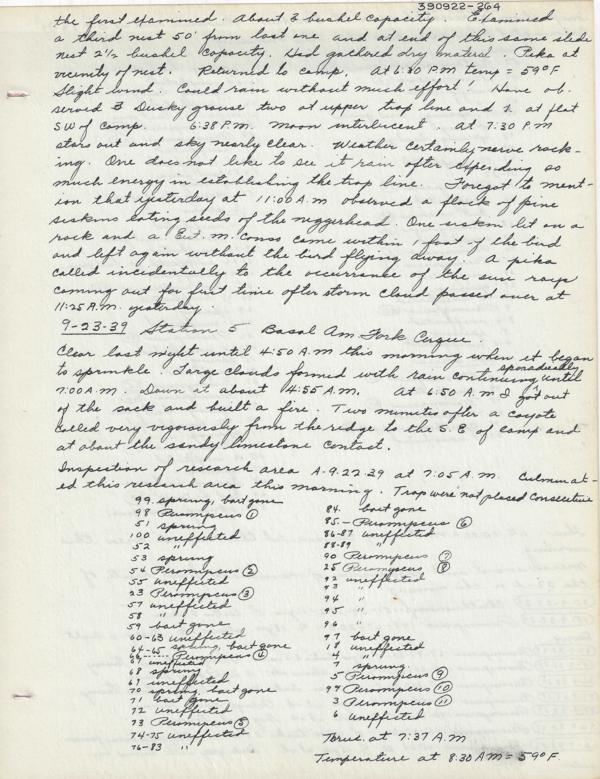 390922-264
the first examined. About 3 bushel capacity. Examined
a third nest 50' from last one and at end of this same slide
nest 2½ bushel capacity. Had gathered dry material. Pika at
vicinity of nest. Returned to camp. At 6:30 P.M temp = 59°F
Slight wind. Could rain without much effort! Have ob-
served 3 Dusky grouse two at upper trap line and 1 at flat
SW of camp. 6:38 P.M. Moon interlucent. At 7:30 P.M
stars out and sky nearly clear. Weather certainly nerve rock-
ing. One does not like to see it rain after expending so
much energy in establishing the trap line. Forgot to ment-
ion that yesterday at 11:00 A.M observed a flock of pine
siskins eating seeds of the niggerhead. One siskin lit on a
rock and a Eut. m. came within 1 foot of the bird
and left again without the bird flying away. A pika
called incidentally to the occurrance of the sun rays
coming out for first time after storm cloud passed over at
11:25 A.M. yesterday
9-23-39 Station 5 Basal Am Fork Cirque.
Clear last night until 4:50 A.M this morning when it began
to sprinkle. Large clouds formed with rain continuing sporadically until
7:00 A.M. Dawn at about 4:55 A.M. At 6:50 A.M I got out
of the sack and built a fire. Two minutes after a coyote
called very vigorously from the ridge to the S.E of camp and
at about the sandy limestone contact.
Inspection of research area A-9-22-39 at 7:05 A.M. Culminat-
ed this research area this morning. Trap were not placed consecutive
99 sprung, bait gone
98 Peromyscus ①
51 sprung
100 uneffected
52 "
53 sprung
54 Peromyscus ②
55 uneffected
23 Peromyscus ③
57 uneffected
58 "
59 bait gone
60-63 uneffected
64-65 sprung, bait gone
66 Peromyscus ④
67 uneffected
68 sprung
69 uneffected
70 sprung, bait gone
71 bait gone
72 uneffected
73 Peromyscus ⑤
74-75 uneffected
76-83 "
84 bait gone
85 - Peromyscus ⑥
86-87 uneffected
88-89 "
90 Peromyscus ⑦
25 Peromyscus ⑧
92 uneffected
93 "
94 "
95 "
96 "
97 bait gone
18 uneffected
4 "
7 sprung
5 Peromyscus ⑨
99 Peromyscus ⑩
3 Peromyscus ⑪
6 uneffected
Torus at 7:37 A.M
Temperature at 8:30 AM = 59°F